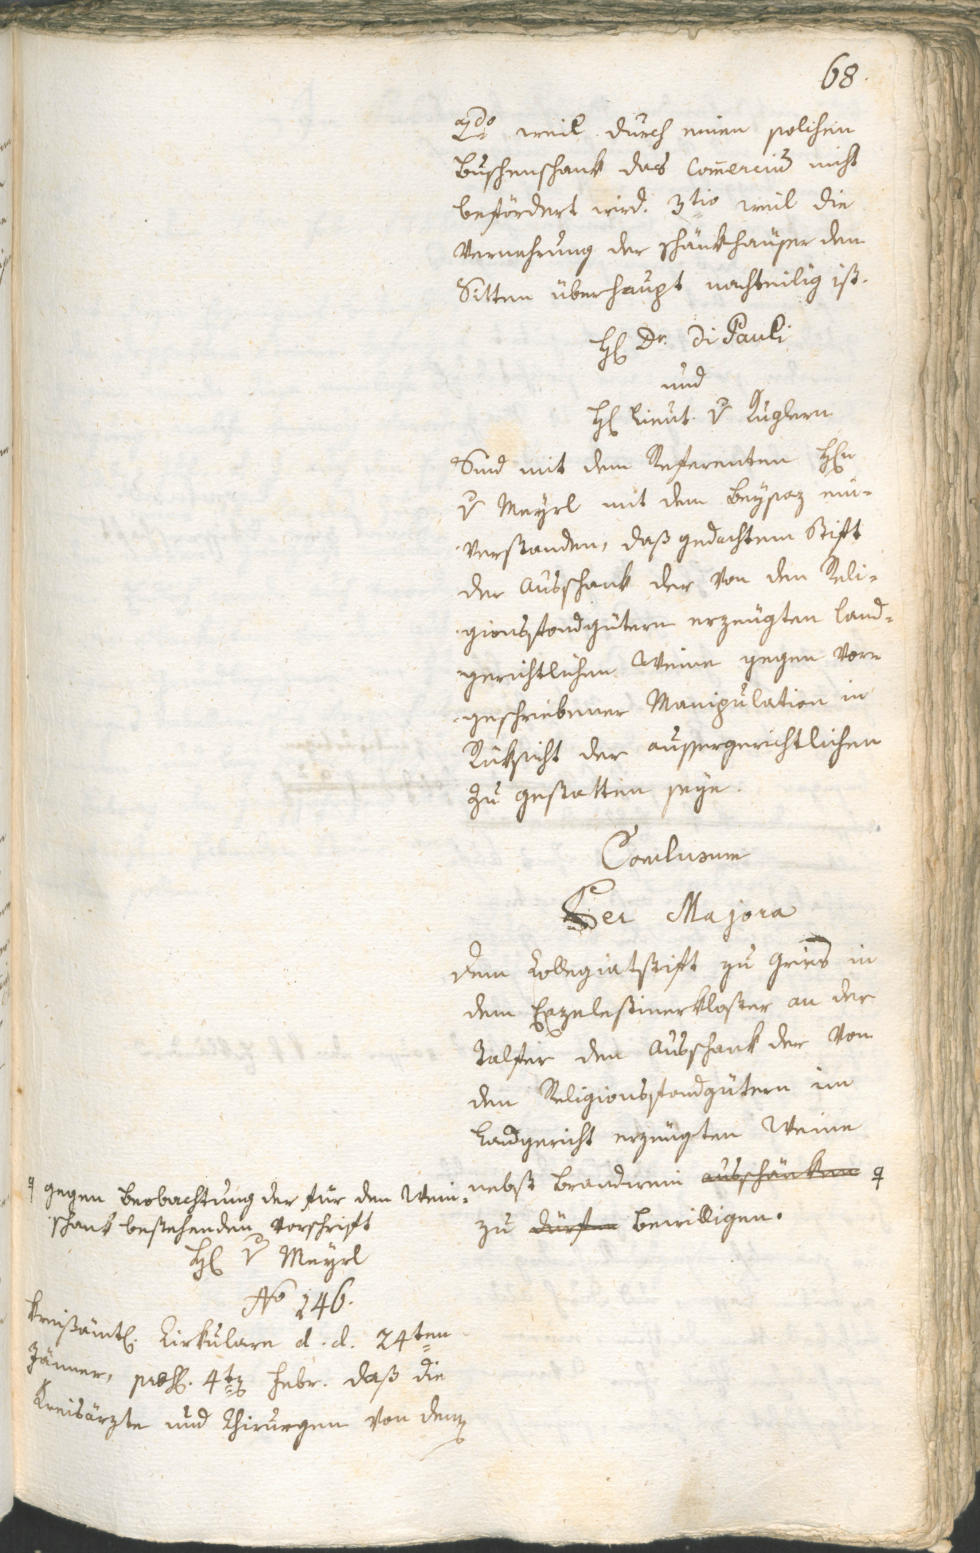 68.
2do weil durch einen solchen
Buschenschank das Com̄ercium nicht
befördert wird. 3tio weil die
Vermehrung der Schänkhäuser den
Sitten überhaupt nachteilig ist.
H Dr. Di Pauli
und
H Lieut. v Kuglern
Sind mit dem Referenten Hn
v Mayrl mit dem Beysaz ein-
verstanden, daß gedachtem Stift
der Ausschank der von den Reli-
gionsfondgütern erzeugten land-
gerichtlichen Weine gegen vor-
geschriebener Manipulation in
Rüksicht der aussergerichtlichen
zu gestatten seye.
Conclusum
Per Majora
dem Kollegiatstift zu Gries in
dem Exzelestinerkloster an der
Talfer den Ausschank der von
den Religionsfondgütern im
Landgericht erzeugten Weine
nebst Brandwein ausschänken
zu dürfen bewilligen.
gegen Beobachtung der für den Wein-
schank bestehenden Vorschrift
H v Mayrl
No 146.
Kreisämtl. Zirkulare d. d. 24ten
Jänner, präs. 4t Febr. daß die
Kreisärzte und Chirurgen von den